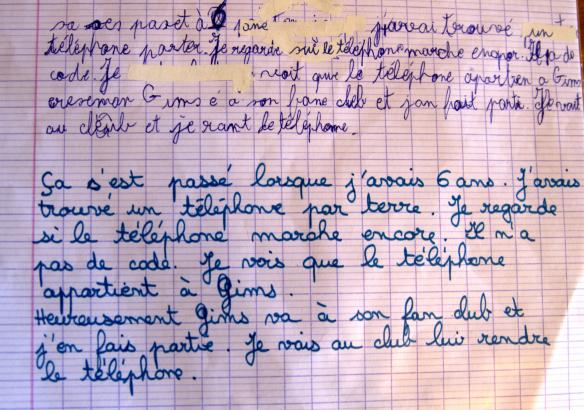 sa ses paset à 6 jane jarvai trouvé un
téléphone parter. Je regarde sui le téléphone marche encpor. Il pa de
code. Je voit que le téléphone apartien a Gims
oreseman Gims é a son fane club et jan fait parti. Je vait
au club et je rant le téléphone.
Ça s'est passé lorsque j'avais 6 ans. J'avais
trouvé un téléphone par terre. Je regarde
si le téléphone marche encore. Il n'a
pas de code. Je vois que le téléphone
appartient à Gims.
Heureusement Gims va à son fan club et
j'en fais partie. Je vais au club lui rendre
le téléphone.